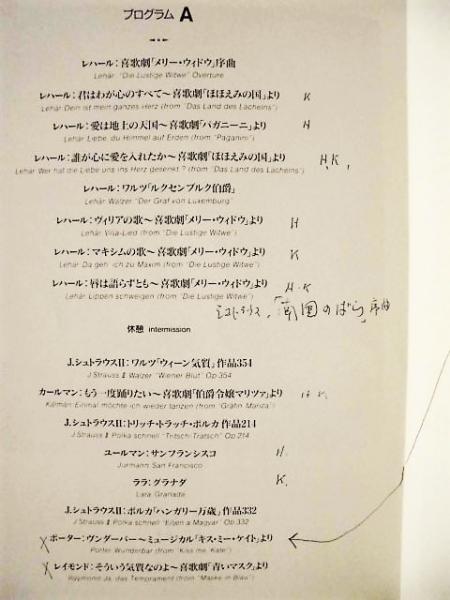 プログラム A
レハール：喜歌劇「メリー・ウィドウ」序曲
Lehár: "Die Lustige Witwe" Overture
レハール：君はわが心のすべて〜喜歌劇「ほほえみの国」より K
Lehár: Dein ist mein ganzes Herz (from "Das Land des Lächelns")
レハール：愛は地上の天国〜喜歌劇「パガニーニ」より H
Lehár: Liebe, du Himmel auf Erden (from "Paganini")
レハール：誰が心に愛を入れたか〜喜歌劇「ほほえみの国」より H,K,
Lehár: Wer hat die Liebe uns ins Herz gesenkt ? (from "Das Land des Lächelns")
レハール：ワルツ「ルクセンブルク伯爵」
Lehár: Walzer "Der Graf von Luxemburg"
レハール：ヴィリアの歌〜喜歌劇「メリー・ウィドウ」より H
Lehár: Vilia-Lied (from "Die Lustige Witwe")
レハール：マキシムの歌〜喜歌劇「メリー・ウィドウ」より K
Lehár: Da geh' ich zu Maxim (from "Die Lustige Witwe")
レハール：唇は語らずとも〜喜歌劇「メリー・ウィドウ」より H・K
Lehár: Lippen schweigen (from "Die Lustige Witwe")
「南国のばら」序曲
休憩 intermission
J.シュトラウスII：ワルツ「ウィーン気質」作品354
J.Strauss II: Walzer "Wiener Blut" Op.354
カールマン：もう一度踊りたい〜喜歌劇「伯爵令嬢マリツァ」より H K.
Kálmán: Einmal möchte ich wieder tanzen (from "Gräfin Mariza")
J.シュトラウスII：トリッチ・トラッチ・ポルカ 作品214
J.Strauss II: Polka schnell "Tritsch-Tratsch" Op.214
ユールマン：サンフランシスコ H.
Jurmann: San Francisco
ララ：グラナダ K.
Lara: Granada
J.シュトラウスII：ポルカ「ハンガリー万歳」作品332
J.Strauss II: Polka schnell "Éljen a Magyar" Op.332
X ポーター：ヴンダーバー〜ミュージカル「キス・ミー・ケイト」より
Porter: Wunderbar (from "Kiss me, Kate")
X レイモンド：そういう気質なのよ〜喜歌劇「青いマスク」より
Raymond: Ja, das Temprament (from "Maske in Blau")